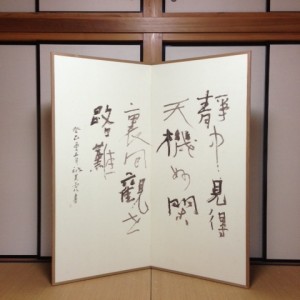 静中見得
天機妙閑
裏回觀世
路難